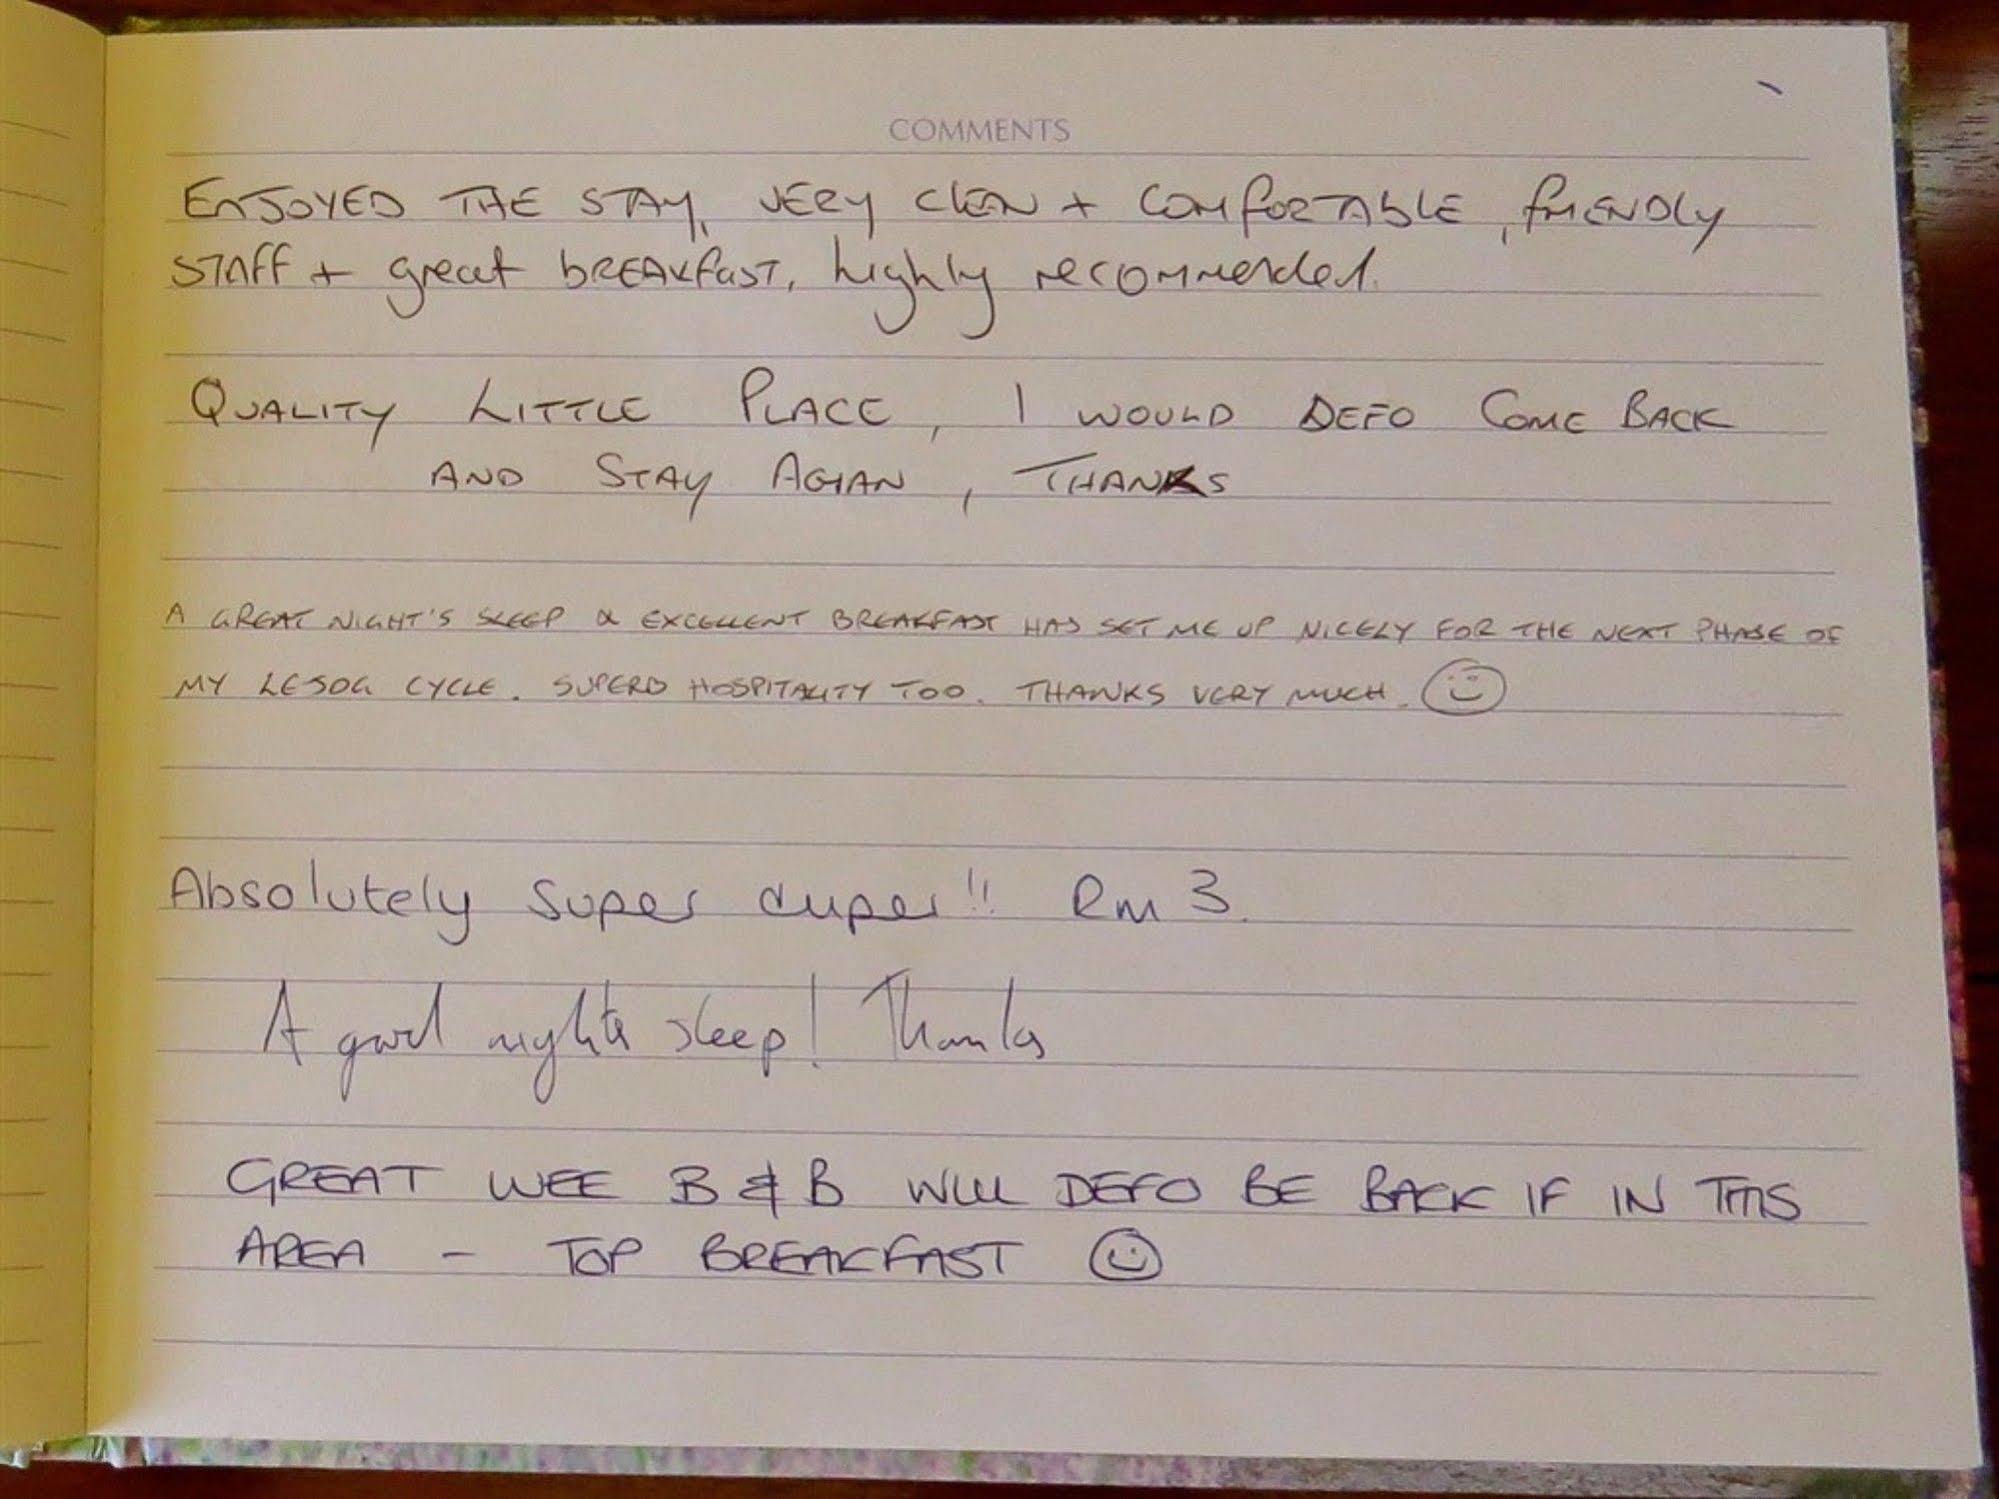 COMMENTS
ENJOYED THE STAY, VERY CLEAN + COMFORTABLE, friENDLy
STAff + great bREAKfasT, highly recommended.
QUALITY LITTLE PLACE, I WOULD DEFO COME BACK
AND STAY AGIAN, THANKS
A GREAT NIGHT'S SLEEP & EXCELLENT BREAKFAST HAS SET ME UP NICELY FOR THE NEXT PHASE OF
MY LEJOG CYCLE. SUPERB HOSPITALITY TOO. THANKS VERY MUCH. ☺
Absolutely super duper!! Rm 3.
A good nights sleep! Thanks
GREAT WEE B & B WILL DEFO BE BACK IF IN THIS
AREA - TOP BREAKFAST ☺